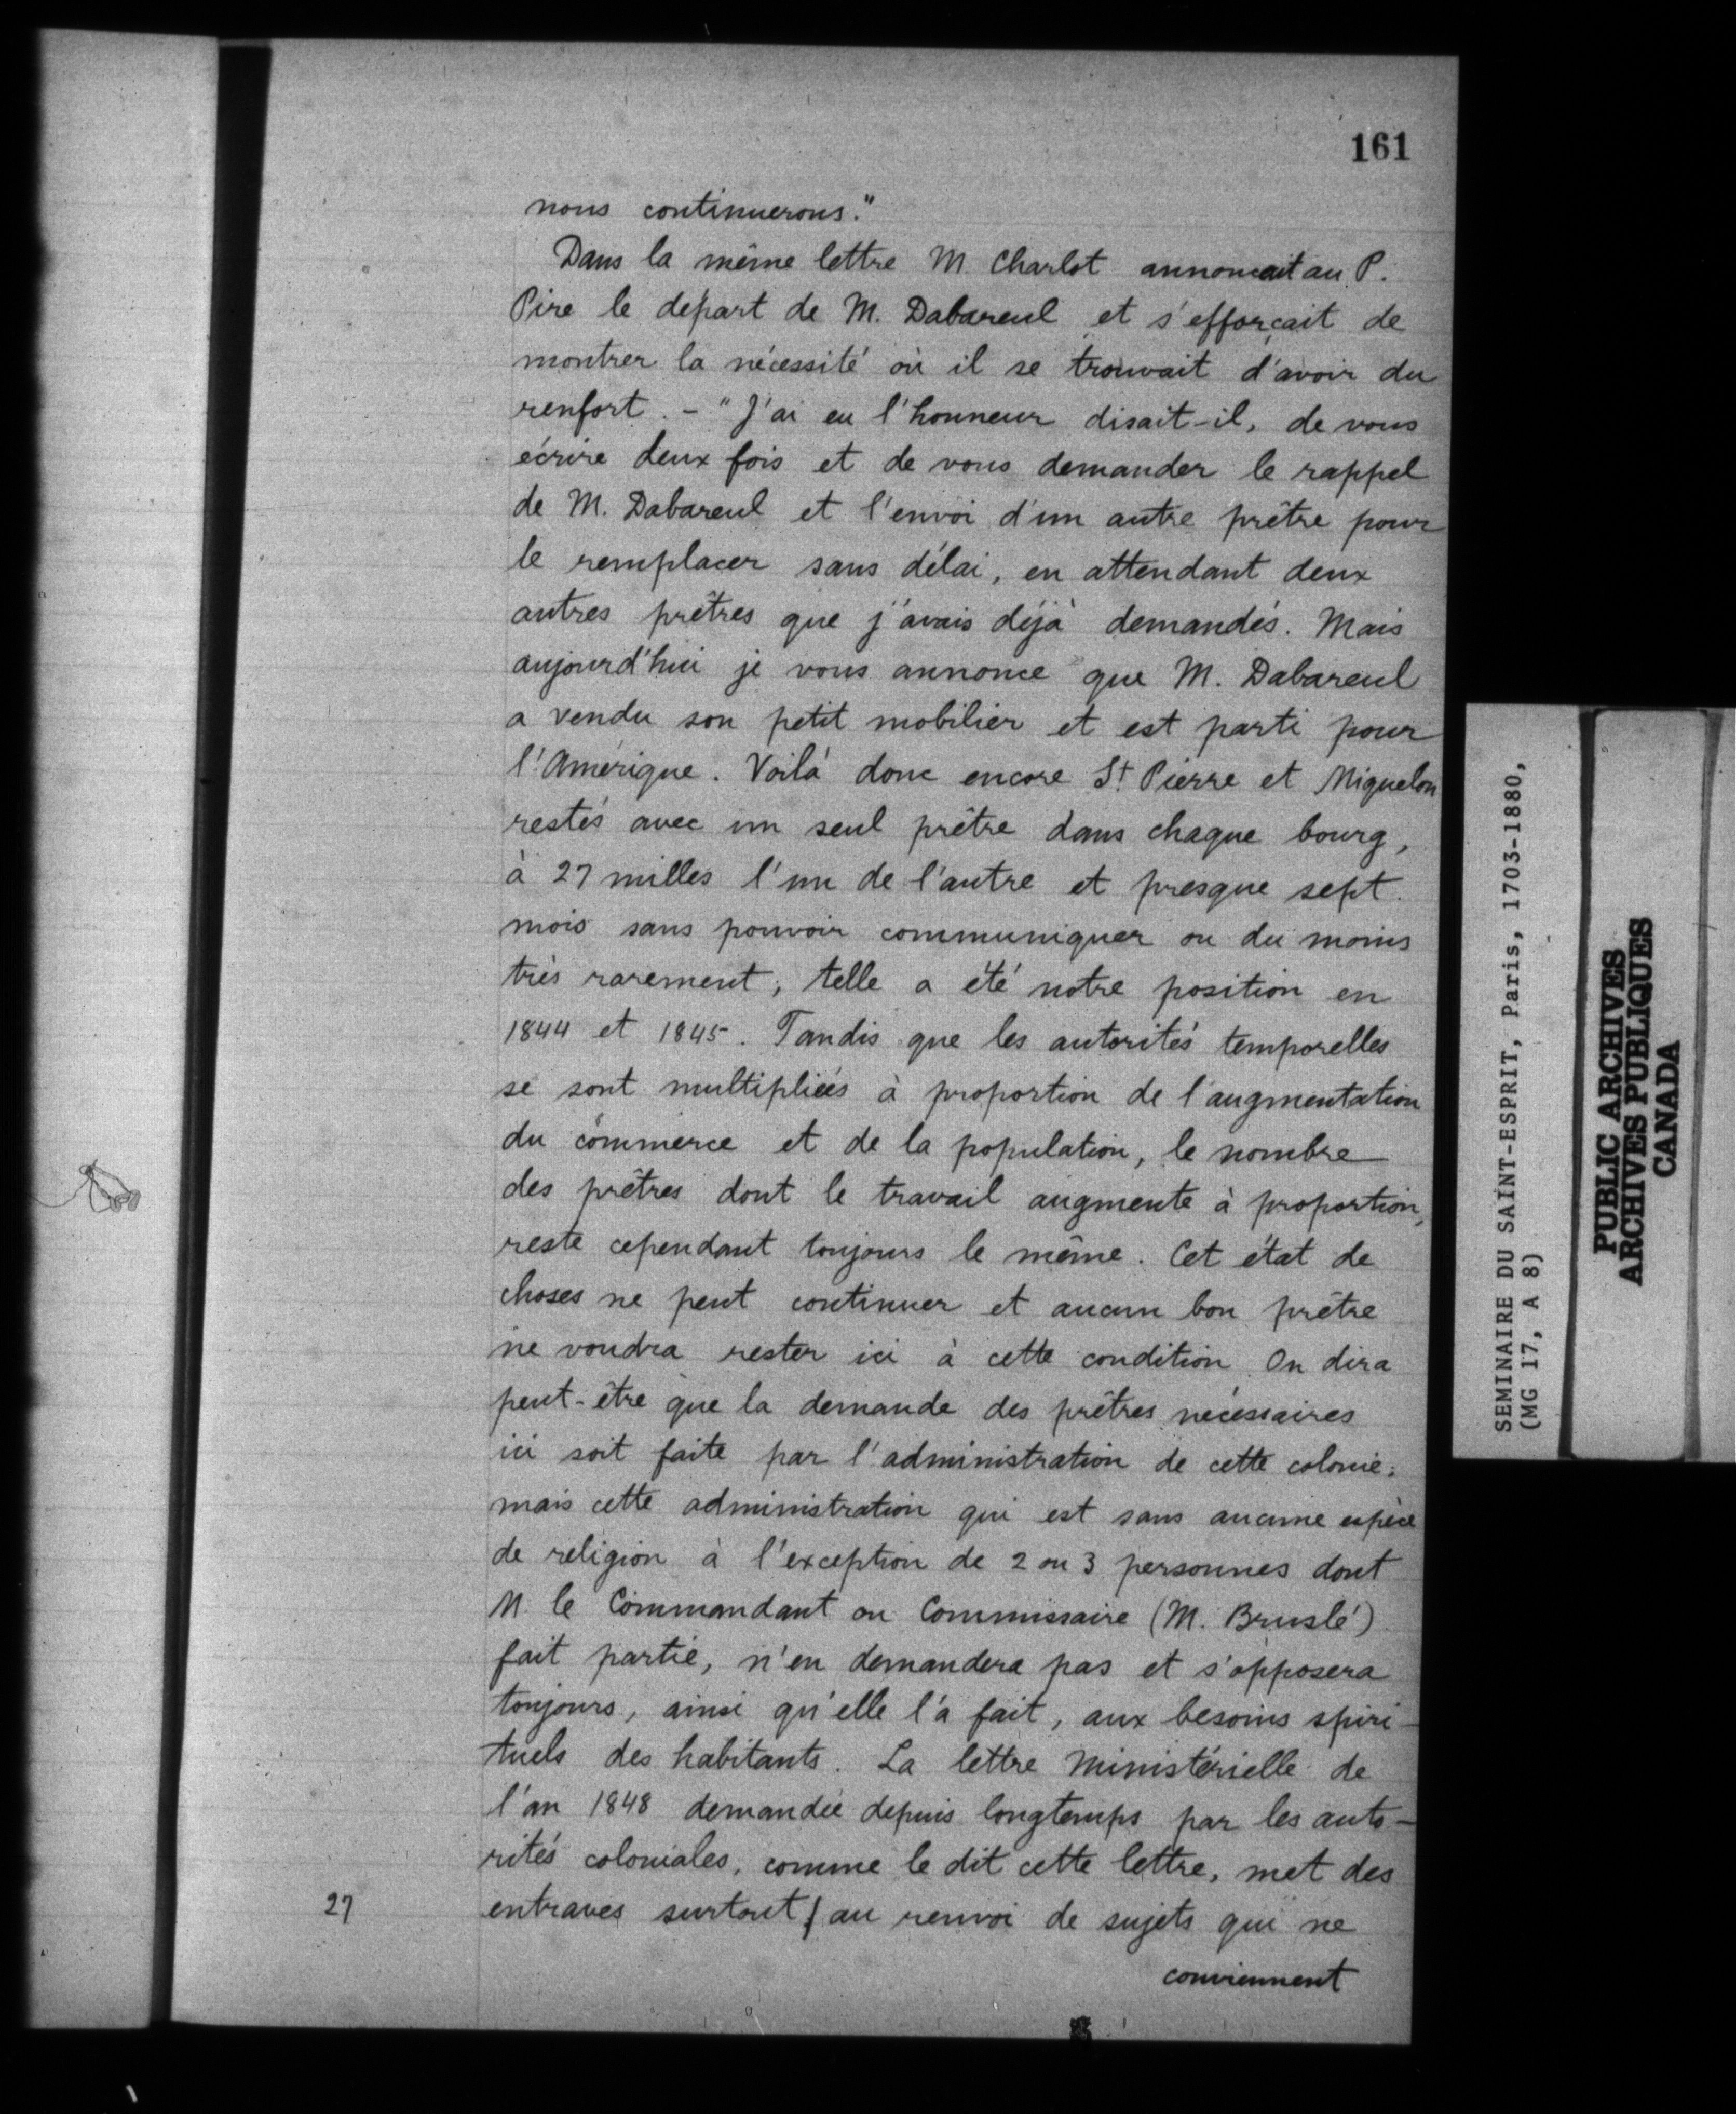 161
nous continuerons."
Dans la même lettre M. Charlot annoncait au P.
Pire le départ de M. Dabareul et s'efforçait de
montrer la nécessité où il se trouvait d'avoir du
renfort. - "J'ai eu l'honneur disait-il, de vous
écrire deux fois et de vous demander le rappel
de M. Dabareul et l'envoi d'un autre prêtre pour
le remplacer sans délai, en attendant deux
autres prêtres que j'avais déjà demandés. Mais
aujourd'hui je vous annonce que M. Dabareul
a vendu son petit mobilier et est parti pour
l'Amérique. Voilà donc encore St Pierre et Miquelon
restés avec un seul prêtre dans chaque bourg,
à 27 milles l'un de l'autre et presque sept
mois sans pouvoir communiquer ou du moins
très rarement; telle a été notre position en
1844 et 1845. Tandis que les autorités temporelles
se sont multipliées à proportion de l'augmentation
du commerce et de la population, le nombre
des prêtres dont le travail augmente à proportion,
reste cependant toujours le même. Cet état de
choses ne peut continuer et aucun bon prêtre
ne voudra rester ici à cette condition. On dira
peut-être que la demande des prêtres nécessaires
ici soit faite par l'administration de cette colonie;
mais cette administration qui est sans aucune espèce
de religion à l'exception de 2 ou 3 personnes dont
M. le Commandant ou Commissaire (M. Bruslé)
fait partie, n'en demandera pas et s'opposera
toujours, ainsi qu'elle l'a fait, aux besoins spiri-
tuels des habitants. La lettre Ministérielle de
l'an 1848 demandée depuis longtemps par les auto-
rités coloniales, comme le dit cette lettre, met des
27 entraves surtout au renvoi de sujets qui ne
conviennent
SEMINAIRE DU SAINT-ESPRIT, Paris, 1703-1880,
(MG 17, A 8)
PUBLIC ARCHIVES
ARCHIVES PUBLIQUES
CANADA